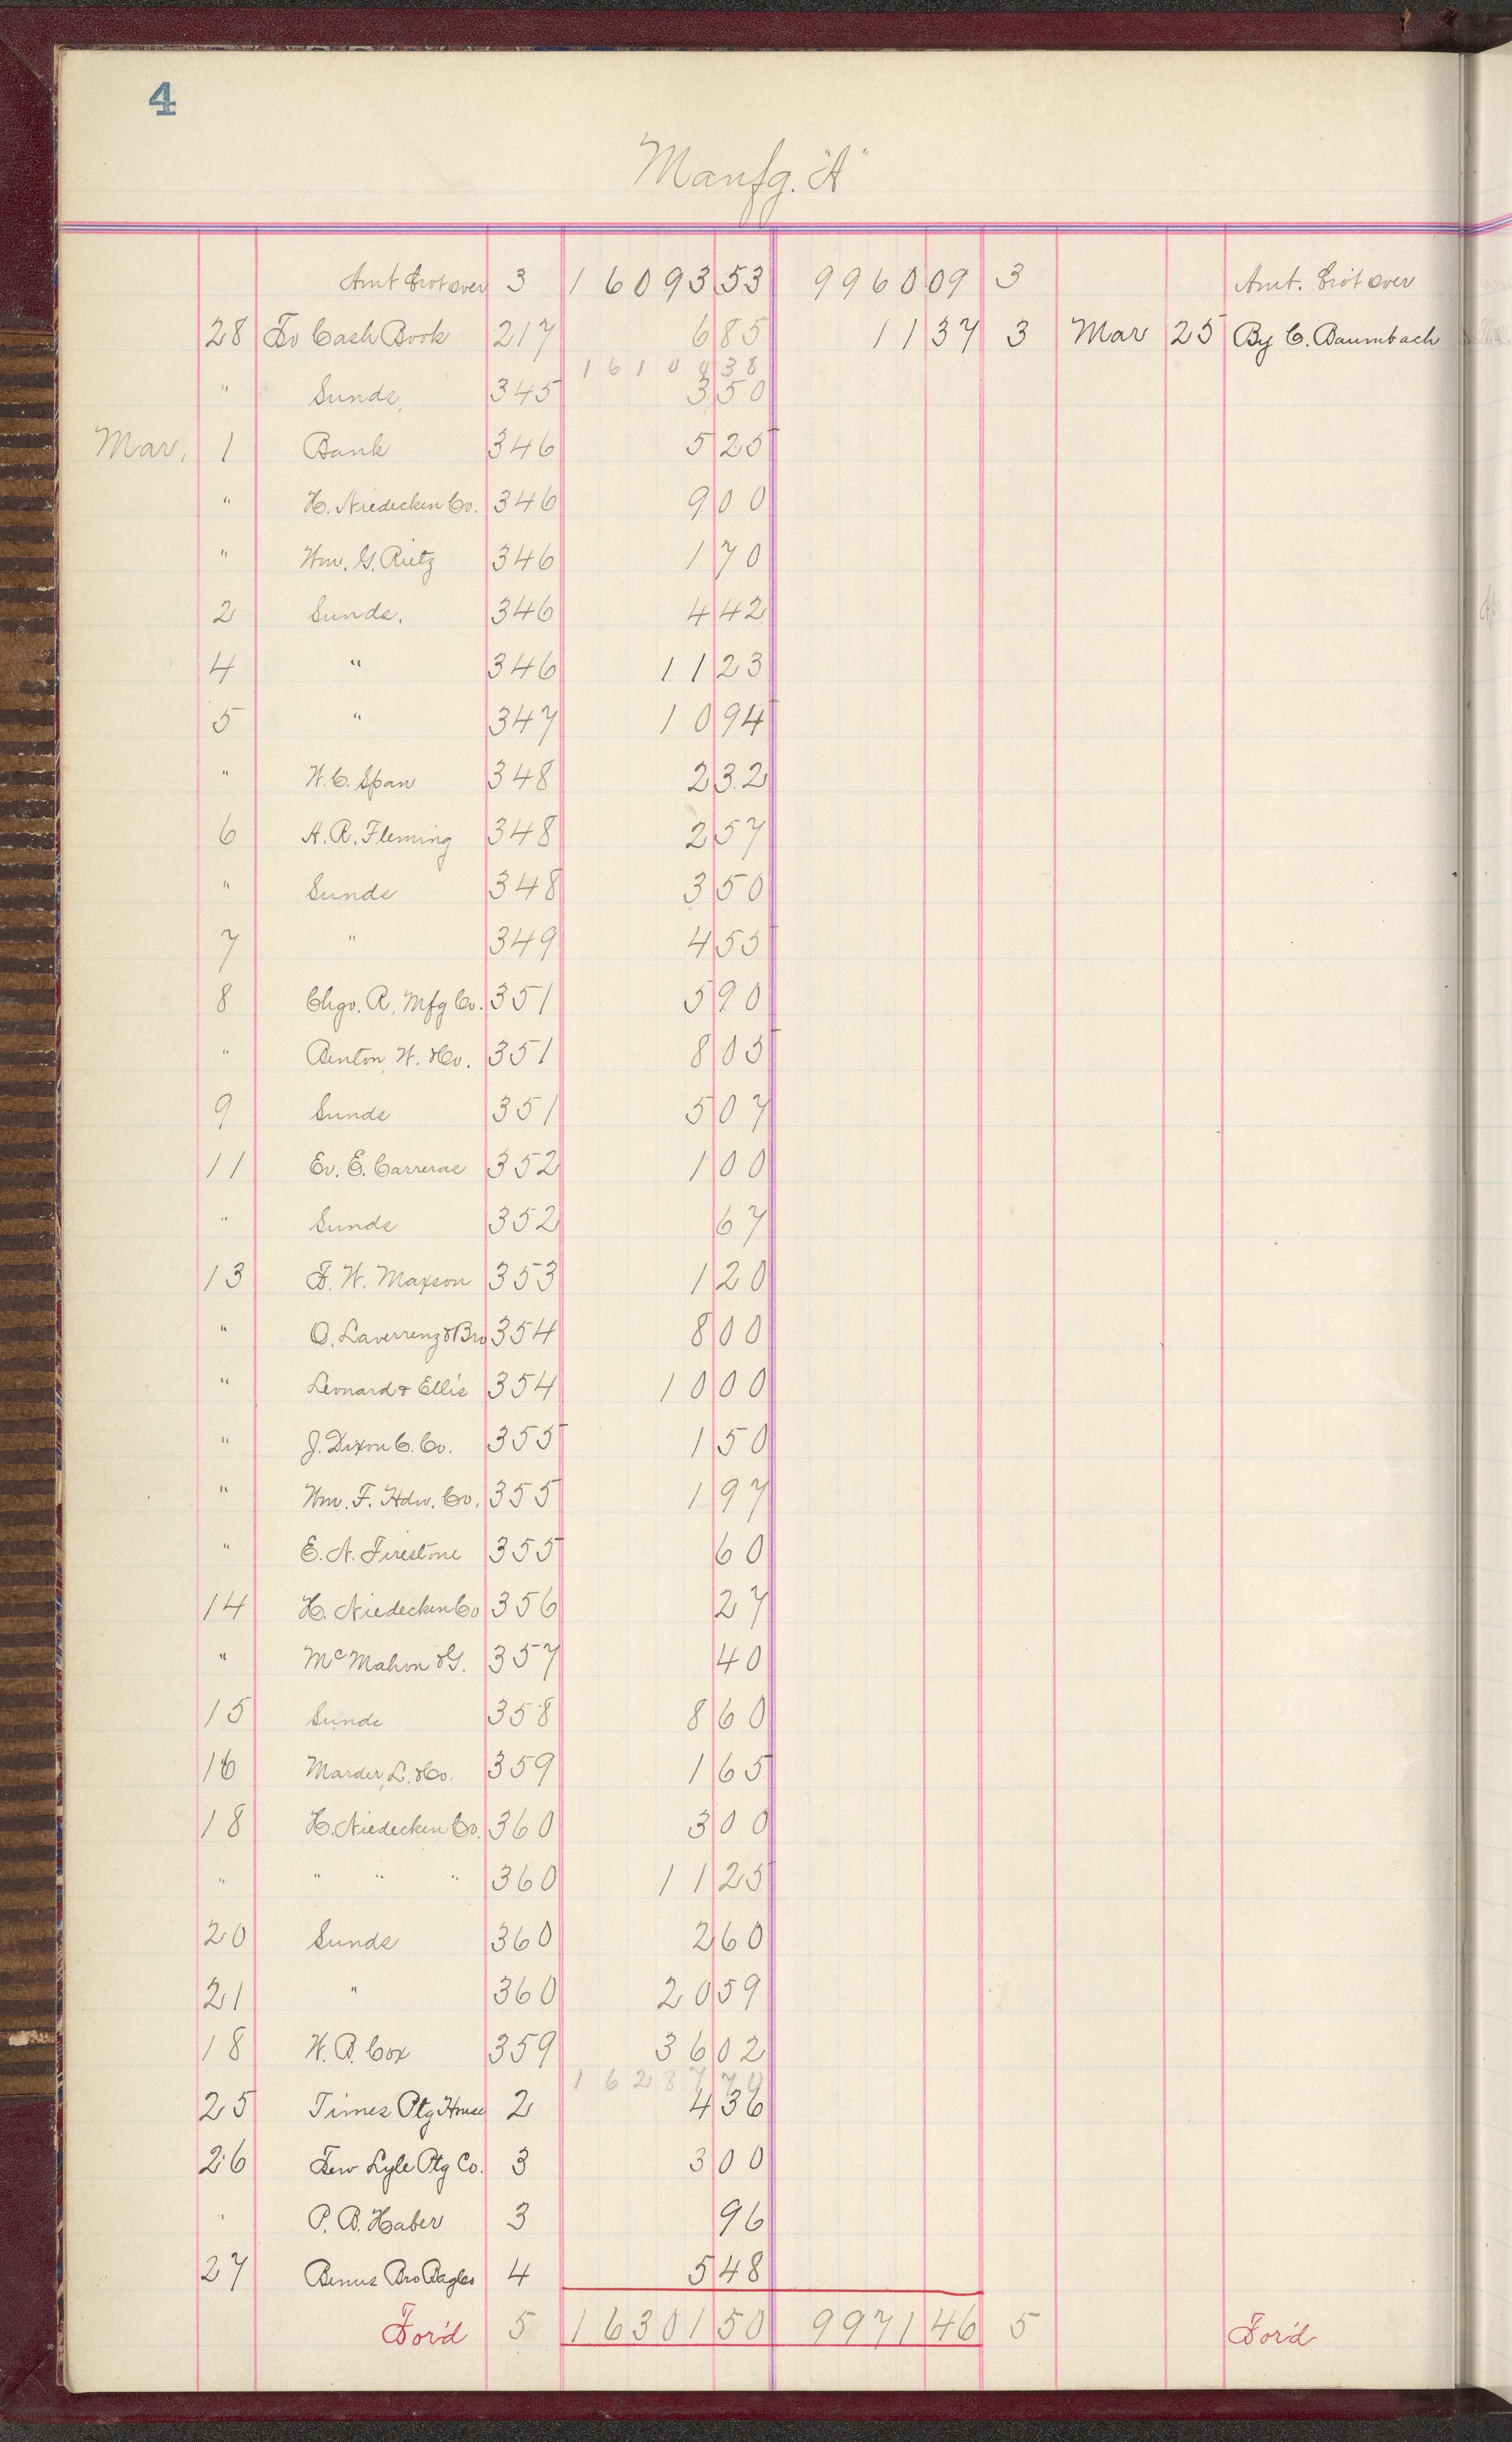 4
Manfg. "A"
Amt brot over 3 16093 53 9960 09 3 Amt. brot over
28 To Cash Book 217 6 85 11 37 3 Mar 25 By C. Baumbach
16100 38
" Sunds. 345 3 50
Mar. 1 Bank 346 5 25
" H. Niedecken Co. 346 9 00
" Wm. G. Rietz 346 1 70
2 Sunds. 346 4 42
4 " 346 11 23
5 " 347 10 94
" W. C. Span 348 2 32
6 A. R. Fleming 348 2 57
" Sunds 348 3 50
7 " 349 4 55
8 Chgo. R. Mfg Co. 351 5 90
" Benton, W. & Co. 351 8 05
9 Sunds 351 5 07
11 Ev. E. Carreras 352 1 00
" Sunds 352 67
13 F. W. Maxson 353 1 20
" O. Laverrenz & Bro 354 8 00
" Leonard & Ellis 354 10 00
" J. Dixon C. Co. 355 1 50
" Wm. F. Hdw. Co. 355 1 97
" E. A. Firestone 355 60
14 H. Niedecken Co 356 27
" McMahon & G. 357 40
15 Sunds 358 8 60
16 Marder, L. & Co. 359 1 65
18 H. Niedecken Co. 360 3 00
" " " " 360 11 25
20 Sunds 360 2 60
21 " 360 20 59
18 W. B. Cox 359 36 02
16287 70
25 Times Ptg House 2 4 36
26 Lew Lyle Ptg Co. 3 3 00
" P. B. Haber 3 96
27 Bemis Bro Bag Co 4 5 48
For'd 5 16301 50 9971 46 5 For'd